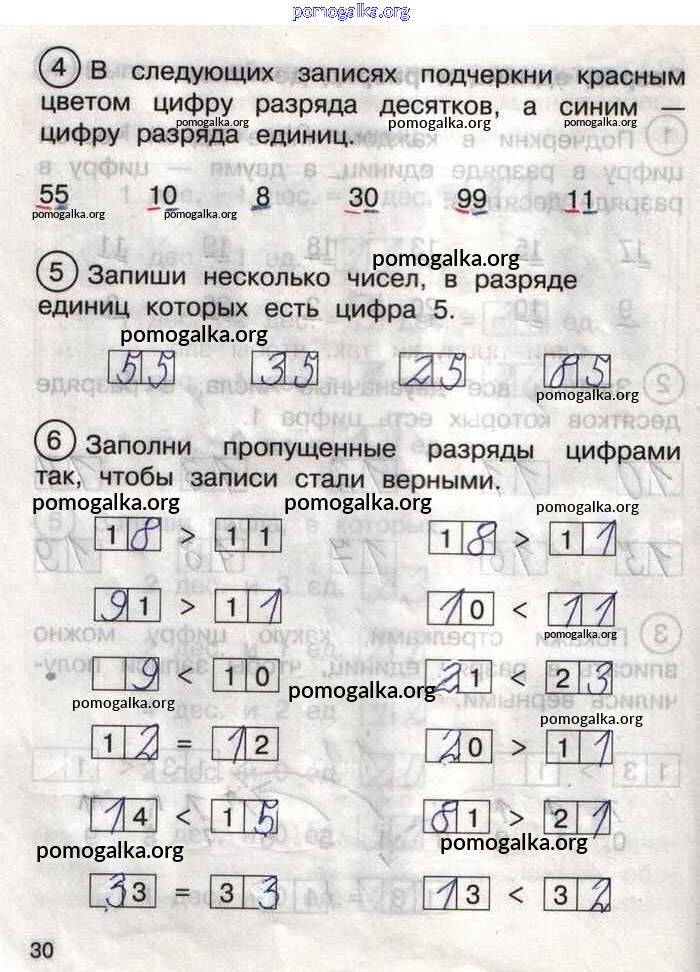 pomogalka.org
4 В следующих записях подчеркни красным
цветом цифру разряда десятков, а синим —
цифру разряда единиц.
pomogalka.org pomogalka.org pomogalka.org
55 10 8 30 99 11
pomogalka.org pomogalka.org pomogalka.org pomogalka.org pomogalka.org
pomogalka.org
5 Запиши несколько чисел, в разряде
единиц которых есть цифра 5.
pomogalka.org
55 35 25 85
pomogalka.org
6 Заполни пропущенные разряды цифрами
так, чтобы записи стали верными.
pomogalka.org pomogalka.org pomogalka.org
18 > 11 18 > 11
pomogalka.org
91 > 11 10 < 11
pomogalka.org
9 < 10 21 < 23
pomogalka.org pomogalka.org pomogalka.org
12 = 12 20 > 11
14 < 15 81 > 21
pomogalka.org pomogalka.org
33 = 33 13 < 32
30